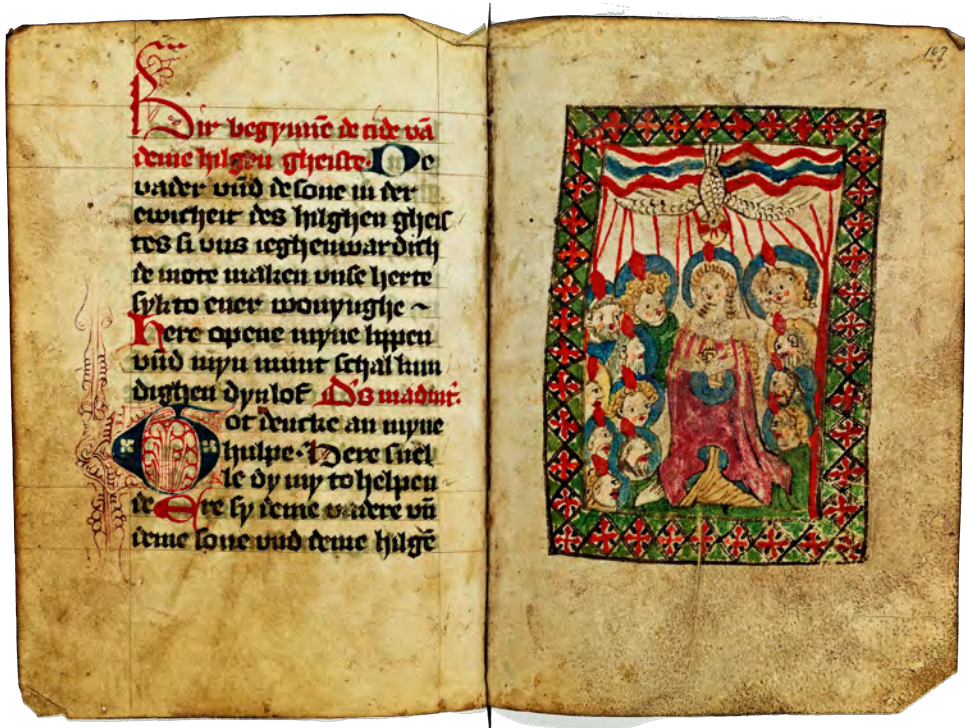 Hir begynnē de tide vā
deme hilgen gheiste. De
vader vn̄d de sone in der
ewicheit des hilghen gheis
tes si vns ieghenwardich
de mote maken vnse herte
syk to ener wonynghe ~
Here opene myne lippen
vn̄d myn munt schal kun
dighen dyn lof Ds̄ in adiut̄.
Got dencke an myne
hulpe. Here snel
le dy my to helpen
de Ere sy deme vadere vn̄
deme sone vnd deme hilgē
167